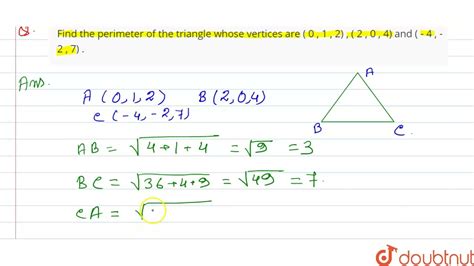 Q.
Find the perimeter of the triangle whose vertices are ( 0 , 1 , 2) , ( 2 , 0 , 4) and ( - 4 , -
2 , 7) .
Ans.
A (0, 1, 2) B (2, 0, 4)
C (-4, -2, 7)
A
B
C
AB = √4+1+4 = √9 = 3
BC = √36+4+9 = √49 = 7.
CA = √
doubtnut